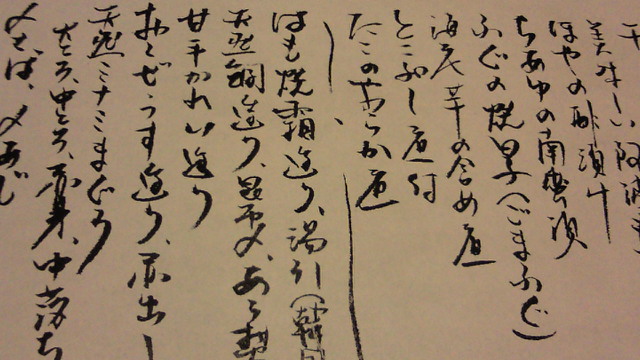 美味しい
ほやの酢漬け
ちあゆの南蛮漬
ふぐの焼（ごまふぐ）
海老芋の含め煮
とこぶし煮付
たこのやわらか煮
はも焼霜造り、湯引（韓国
天然鯛造り、昆布〆、あら
甘手かれい造り
おこぜうす造り、赤出し
天然ミナミまぐろ
大とろ、中とろ、赤身、中落ち
〆さば、〆あじ